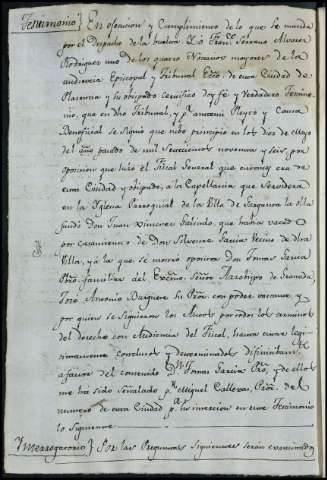 Testimonio} En execucion y Cumplimiento de lo que se manda
por el Despacho de la buelta. Yo Franco Serrano Alvarez
Rodriguez uno de los quatro Notarios mayores de la
audiencia Episcopal y Tribunal Ecco de esta Ciudad de
Plasencia y su obispado certifico doy fe y Verdadero Testimo
nio, que en dho Tribunal, y pr ante mi Pleyto y Causa
Beneficial se siguió que tubo principio en los diez de Mayo
del año pasado de mil Setecientos noventa y seis, por
oposicion que hizo el Fiscal General que entonces era de
esta Ciudad y obispado, a la Capellania que
en la Iglesia Parroquial de la Villa de Garganta la olla
fundó Don Juan Ximenez Galindo, que havia vacado
por casamiento de Don Silvestre Garcia Vecino de dha
Villa, y à la que se mostró opositor Don Tomas Garcia
Pbro, familiar del Excmo Señor Arzobispo de Granada,
José Antonio su Pror. con poder bastante, y
por quien se siguieron los Autos por todos los terminos
del Derecho con Audiencia del Fiscal, hasta estar legi-
timamente conclusos y determinados difinitivamte
a favor del contenido Dn Tomas Garcia Pro, y de ellos
me há sido Señalado pr Miguel Callevas, Pror. del
numero de esta Ciudad pa su insercion en este Testimonio
lo Siguiente
Ynterrogatorio} Por las Preguntas Siguientes serán examinados